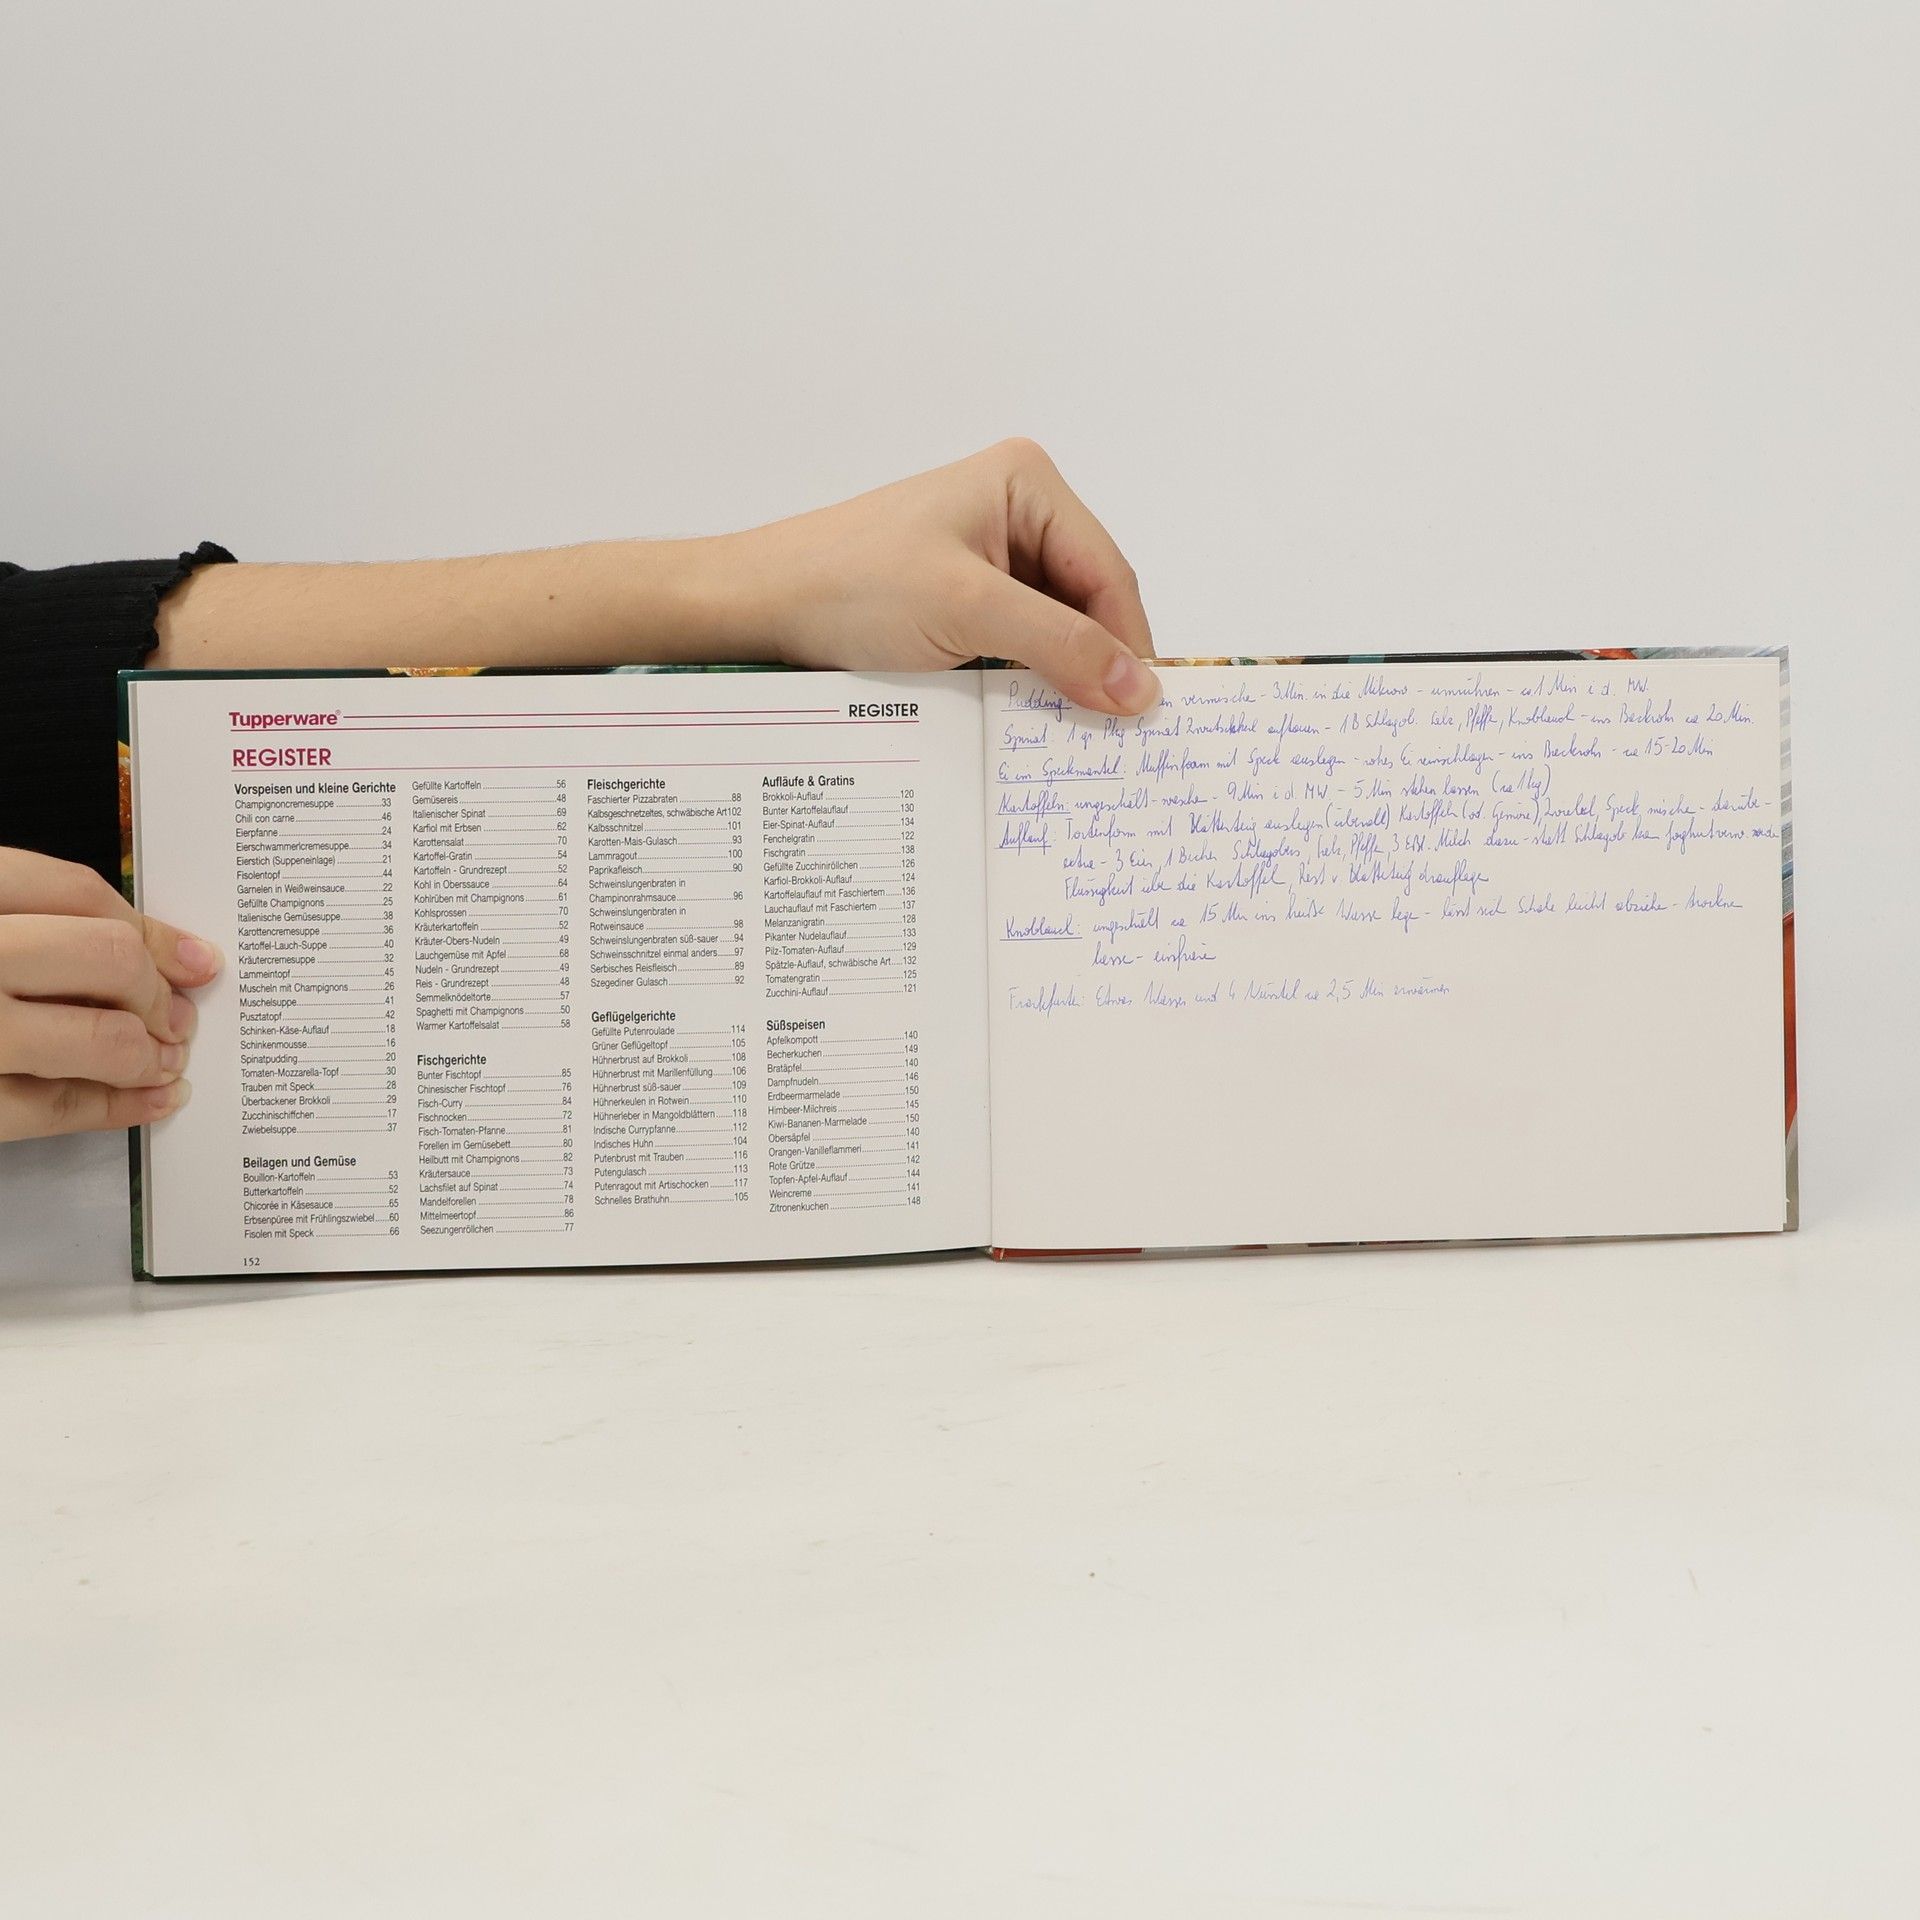 Tupperware® REGISTER
REGISTER
Vorspeisen und kleine Gerichte
Champignoncremesuppe 33
Chili con carne 46
Eierpfanne 24
Eierschwammerlcremesuppe 34
Eierstich (Suppeneinlage) 21
Fisolentopf 44
Garnelen in Weißweinsauce 22
Gefüllte Champignons 25
Italienische Gemüsesuppe 38
Karottencremesuppe 36
Kartoffel-Lauch-Suppe 40
Kräutercremesuppe 32
Lammeintopf 45
Muscheln mit Champignons 26
Muschelsuppe 41
Pusztatopf 42
Schinken-Käse-Auflauf 18
Schinkenmousse 16
Spinatpudding 20
Tomaten-Mozzarella-Topf 30
Trauben mit Speck 28
Überbackener Brokkoli 29
Zucchinischiffchen 17
Zwiebelsuppe 37
Beilagen und Gemüse
Bouillon-Kartoffeln 53
Butterkartoffeln 52
Chicorée in Käsesauce 65
Erbsenpüree mit Frühlingszwiebel 60
Fisolen mit Speck 66
152
Gefüllte Kartoffeln 56
Gemüsereis 48
Italienischer Spinat 69
Karfiol mit Erbsen 62
Karottensalat 70
Kartoffel-Gratin 54
Kartoffeln - Grundrezept 52
Kohl in Oberssauce 64
Kohlrüben mit Champignons 61
Kohlsprossen 70
Kräuterkartoffeln 52
Kräuter-Obers-Nudeln 49
Lauchgemüse mit Apfel 68
Nudeln - Grundrezept 49
Reis - Grundrezept 48
Semmelknödeltorte 57
Spaghetti mit Champignons 50
Warmer Kartoffelsalat 58
Fischgerichte
Bunter Fischtopf 85
Chinesischer Fischtopf 76
Fisch-Curry 84
Fischnocken 72
Fisch-Tomaten-Pfanne 81
Forellen im Gemüsebett 80
Heilbutt mit Champignons 82
Kräutersauce 73
Lachsfilet auf Spinat 74
Mandelforellen 78
Mittelmeertopf 86
Seezungenröllchen 77
Fleischgerichte
Faschierter Pizzabraten 88
Kalbsgeschnetzeltes, schwäbische Art 102
Kalbsschnitzel 101
Karotten-Mais-Gulasch 93
Lammragout 100
Paprikafleisch 90
Schweinslungenbraten in
Champinonrahmsauce 96
Schweinslungenbraten in
Rotweinsauce 98
Schweinslungenbraten süß-sauer 94
Schweinsschnitzel einmal anders 97
Serbisches Reisfleisch 89
Szegediner Gulasch 92
Geflügelgerichte
Gefüllte Putenroulade 114
Grüner Geflügeltopf 105
Hühnerbrust auf Brokkoli 108
Hühnerbrust mit Marillenfüllung 106
Hühnerbrust süß-sauer 109
Hühnerkeulen in Rotwein 110
Hühnerleber in Mangoldblättern 118
Indische Currypfanne 112
Indisches Huhn 104
Putenbrust mit Trauben 116
Putengulasch 113
Putenragout mit Artischocken 117
Schnelles Brathuhn 105
Aufläufe & Gratins
Brokkoli-Auflauf 120
Bunter Kartoffelauflauf 130
Eier-Spinat-Auflauf 134
Fenchelgratin 122
Fischgratin 138
Gefüllte Zucchiniröllchen 126
Karfiol-Brokkoli-Auflauf 124
Kartoffelauflauf mit Faschiertem 136
Lauchauflauf mit Faschiertem 137
Melanzanigratin 128
Pikanter Nudelauflauf 133
Pilz-Tomaten-Auflauf 129
Spätzle-Auflauf, schwäbische Art 132
Tomatengratin 125
Zucchini-Auflauf 121
Süßspeisen
Apfelkompott 140
Becherkuchen 149
Bratäpfel 140
Dampfnudeln 146
Erdbeermarmelade 150
Himbeer-Milchreis 145
Kiwi-Bananen-Marmelade 150
Obersäpfel 140
Orangen-Vanilleflammeri 141
Rote Grütze 142
Topfen-Apfel-Auflauf 144
Weincreme 141
Zitronenkuchen 148
Pudding: vermische - 3 Min. in die Mikrow. - umrühren - ca 1 Min i. d. MW.
Spinat: 1 gr Pkg Spinat auftauen - 1 B Schlagob. Salz, Pfeffer, Knoblauch - ins Backrohr ca 20 Min.
Ei im Speckmantel: Muffinform mit Speck auslegen - rohes Ei reinschlagen - ins Backrohr - ca 15-20 Min
Kartoffeln: ungeschält - wasche - 9 Min i. d. MW - 5 Min stehen lassen (ca 1kg)
Auflauf: Tortenform mit Blätterteig auslegen (überall) Kartoffeln (od. Gemüse), Zwiebel, Speck mische - darübe -
extra - 3 Eier, 1 Becher Schlagobers, Salz, Pfeffer, 3 Eßl. Milch dazu - statt Schlagob. ka Joghurt verw. werde
Flüssigkeit übe die Kartoffel, Rest v. Blätterteig drauflege
Knoblauch: ungeschält ca 15 Min ins heiße Wasse lege - lässt sich Schale leicht abziehe - trockne
lasse - einfriere
Frankfurter: Etwas Wasser und 4 Würstel ca 2,5 Min erwärmen